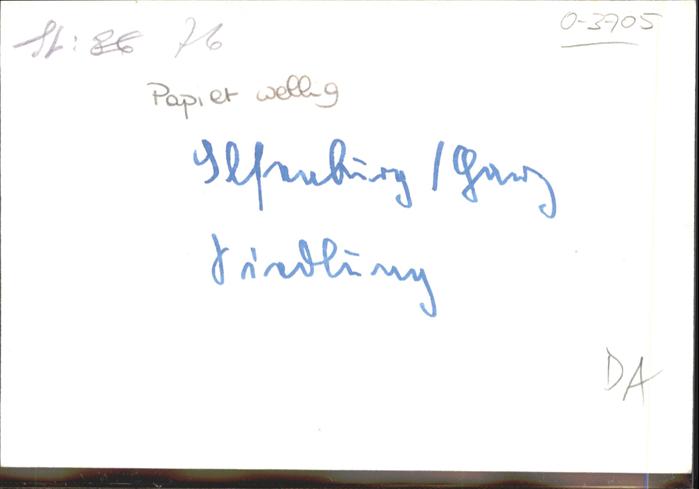 St: 76
O-3705
Papier wellig
Ilsenburg / Harz
Siedlung
DA